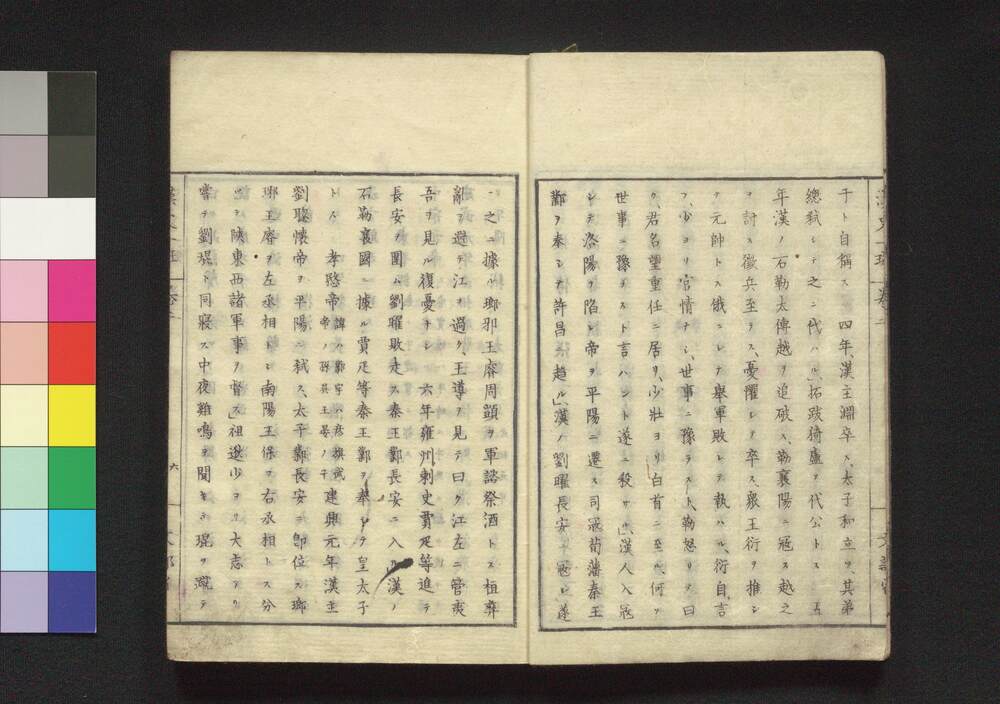 于ト自稱ス　四年、漢主淵卒ス、太子和立ツ、其弟
總弑シテ之ニ代ハル、拓跋猗盧ヲ代公トス　五
年漢ノ石勒太傅越ヲ追破ス、勒襄陽ニ冦ス越之
ヲ討ス徴兵至ラス、憂懼シテ卒ス、衆王衍ヲ推シ
テ元帥トス俄ニシテ擧軍敗レテ執ハル、衍自言
フ、少ヨリ官情ナシ、世事ニ豫ラスト、勒怒リテ曰
ク、君名望重任ニ居リ、少壯ヨリ白首ニ至ル、何ソ
世事ニ豫ラスト言ハント遂ニ殺サル、漢人入冦
シテ洛陽ヲ陷レ帝ヲ平陽ニ遷ス司冦荀藩秦王
鄴ヲ奉シテ許昌ニ趨ル、漢ノ劉曜長安ヲ冦シ遂
ニ之ニ據ル瑯邪王睿周顗ヲ軍諮祭酒トス桓彝
亂ヲ避テ江ヲ過ク、王導ヲ見テ曰ク江左ニ管夷
吾ヲ見ル復憂ナシ　六年雍州刺史賈疋等進テ
長安ヲ圍ム劉曜敗走ス秦王鄴長安ニ入ル漢ノ
石勒襄國ニ據ル賈疋等秦王鄴ヲ奉シテ皇太子
トス　孝愍帝諱ハ鄴字ハ彦旗武帝ノ孫呉王晏ノ子　建興元年漢主
劉聰懷帝ヲ平陽ニ弑ス、太子鄴長安ニ卽位ス瑯
琊王睿ヲ左丞相トシ南陽王保ヲ右丞相トス分
テ陜東西諸軍事ヲ督ス祖逖少ヨリ大志アリ
嘗テ劉琨ト同寢ス中夜雞鳴ヲ聞キテ琨ヲ蹴テ
六